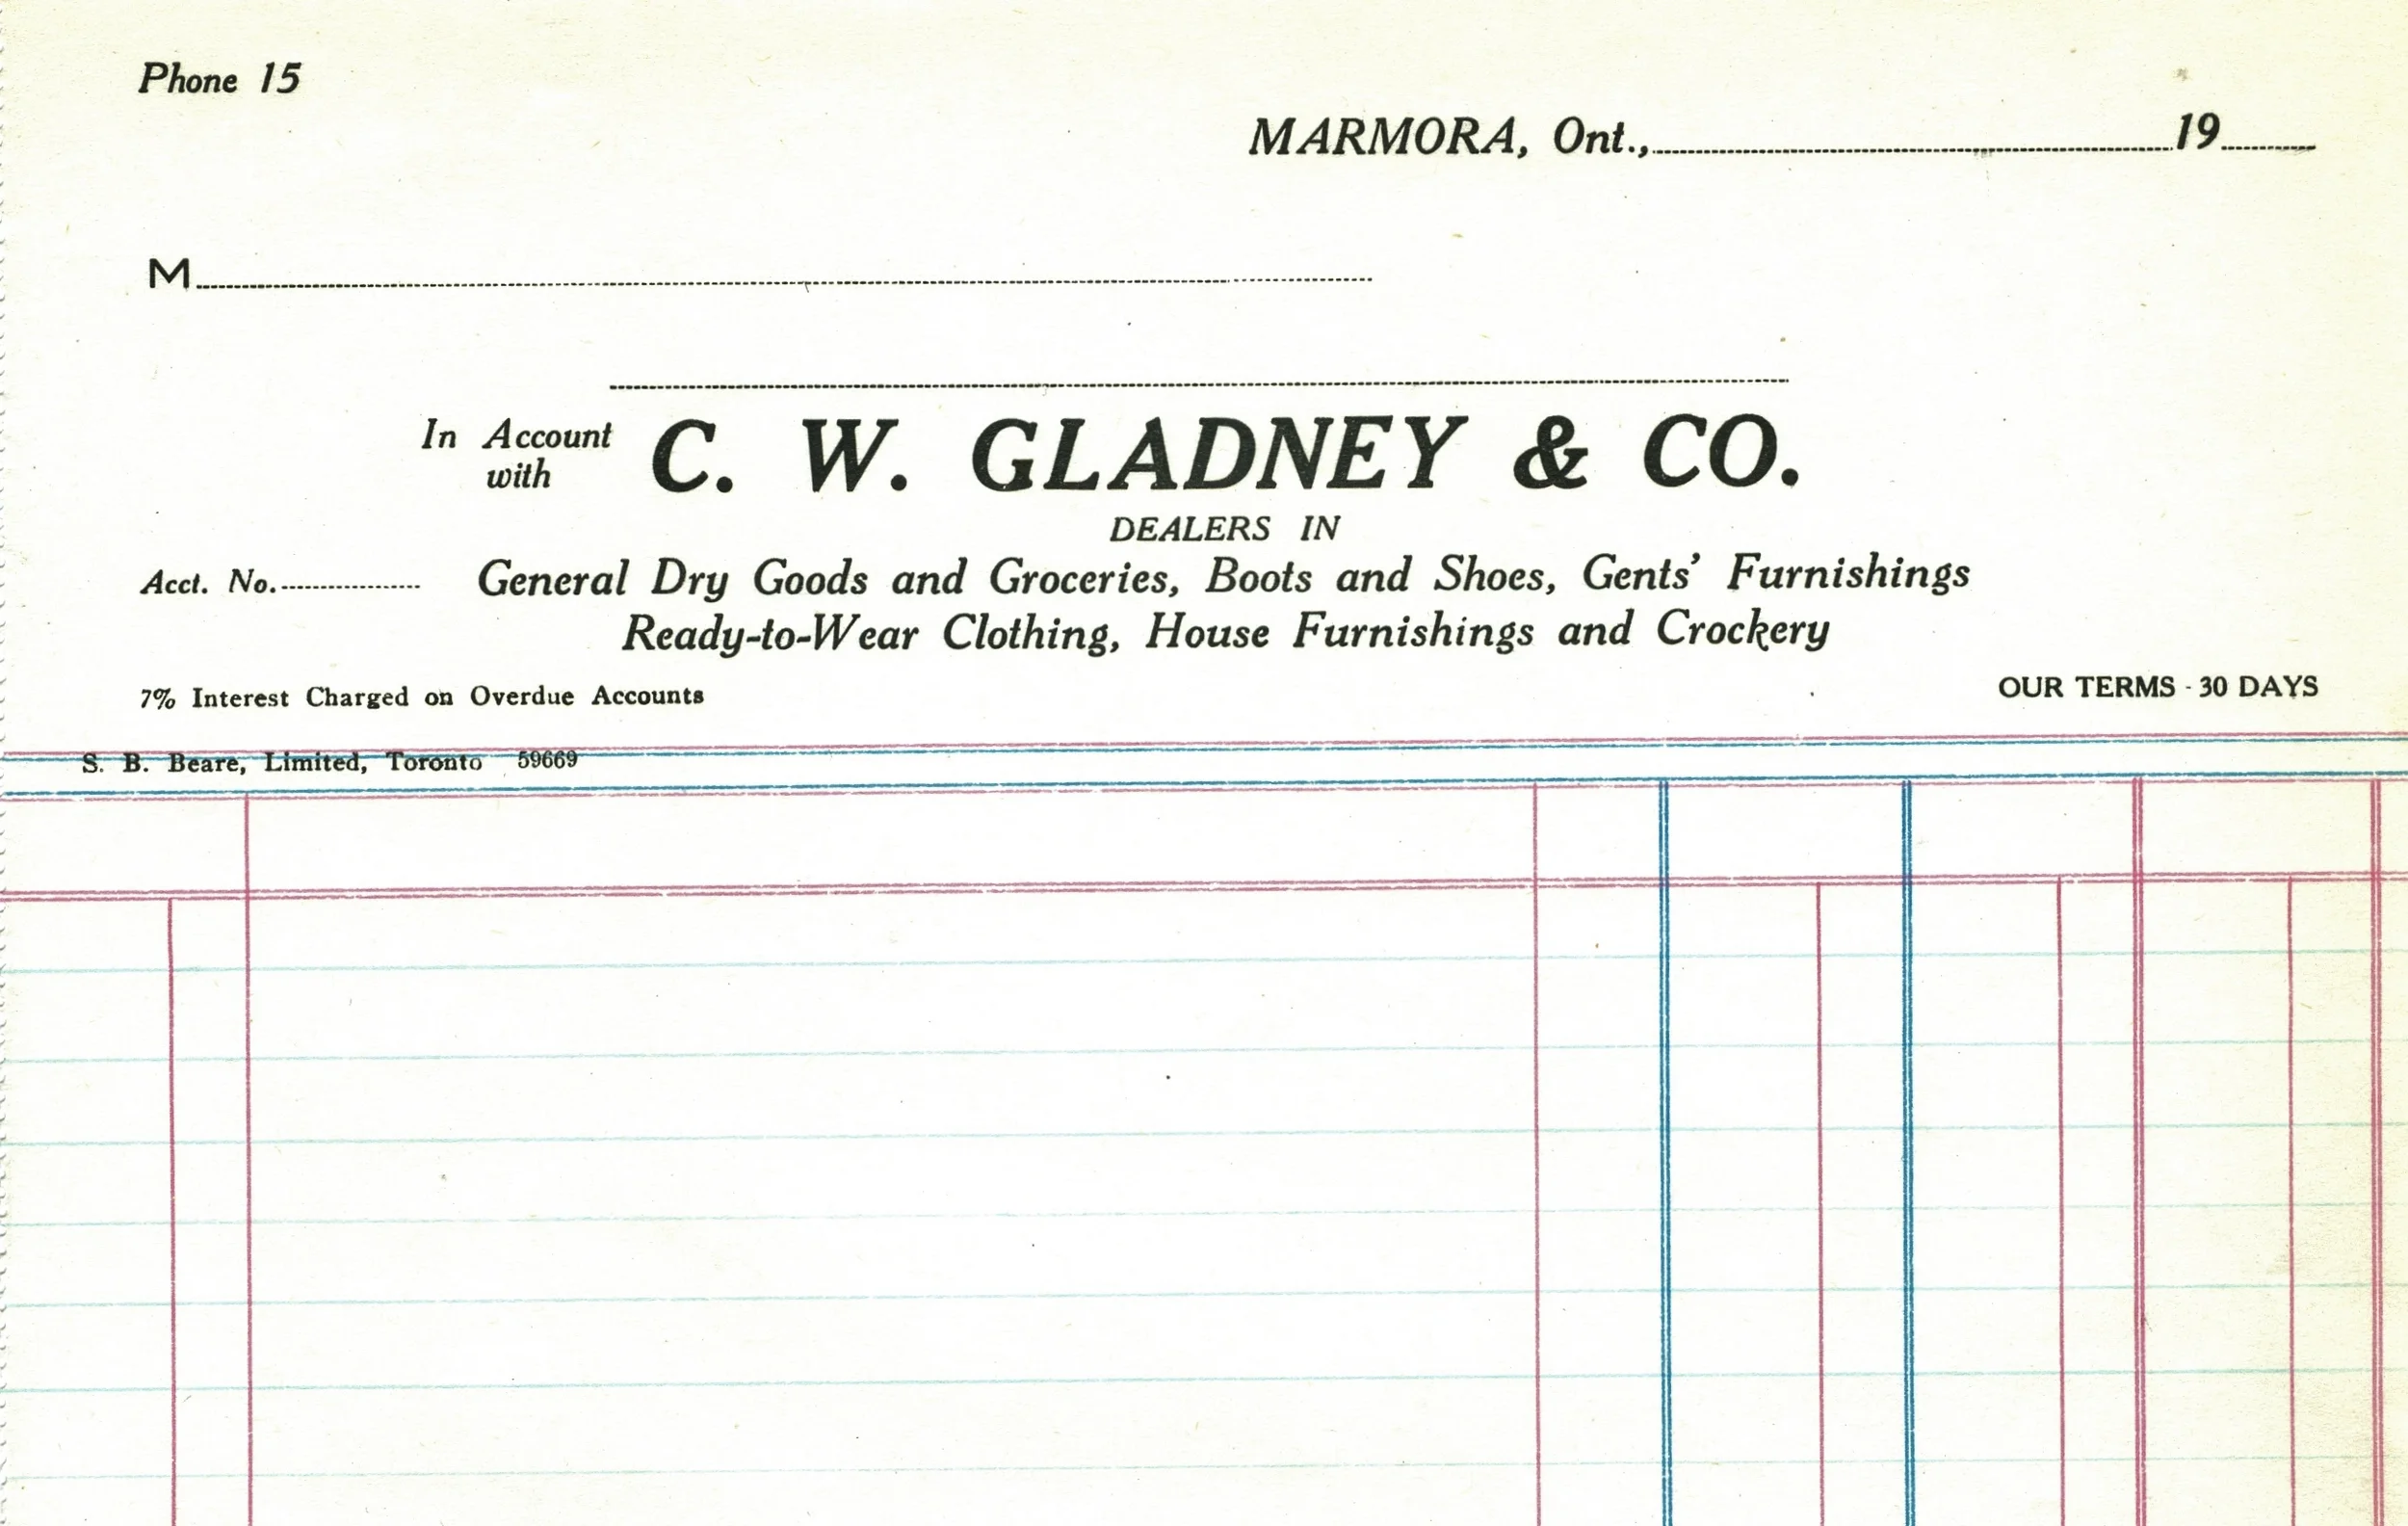 Phone 15
MARMORA, Ont.,........................19......
M........................
In Account with C. W. GLADNEY & CO.
DEALERS IN
Acct. No............ General Dry Goods and Groceries, Boots and Shoes, Gents’ Furnishings
Ready-to-Wear Clothing, House Furnishings and Crockery
7% Interest Charged on Overdue Accounts
OUR TERMS - 30 DAYS
S. B. Beare, Limited, Toronto 59669